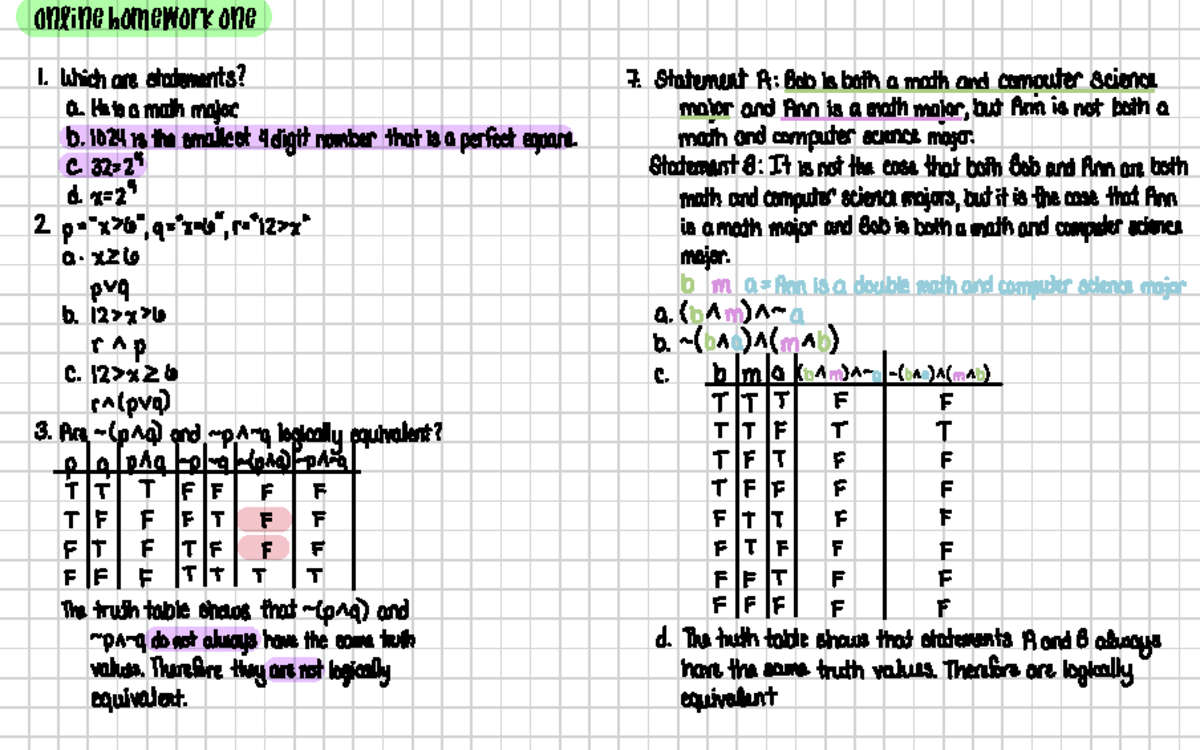 online homework one
1. Which are statements?
a. He is a math major
b. 1024 is the smallest 4 digit number that is a perfect square.
c. 32=2⁹
d. x=2⁹
2 p="x>6", q="x=6", r="12>x"
a. x≥6
p∨q
b. 12>x>6
r∧p
c. 12>x≥6
r∧(p∨q)
3. Are ~(p∧q) and ~p∧~q logically equivalent?
p q p∧q ~p ~q ~(p∧q) ~p∧~q
T T T F F F F
T F F F T F F
F T F T F F F
F F F T T T T
The truth table shows that ~(p∧q) and
~p∧~q do not always have the same truth
values. Therefore they are not logically
equivalent.
7. Statement A: Bob is both a math and computer science
major and Ann is a math major, but Ann is not both a
math and computer science major.
Statement B: It is not the case that both Bob and Ann are both
math and computer science majors, but it is the case that Ann
is a math major and Bob is both a math and computer science
major.
b m a = Ann is a double math and computer science major
a. (b∧m)∧~a
b. ~(b∧a)∧(m∧b)
c. b m a (b∧m)∧~a ~(b∧a)∧(m∧b)
T T T F F
T T F T T
T F T F F
T F F F F
F T T F F
F T F F F
F F T F F
F F F F F
d. The truth table shows that statements A and B always
have the same truth values. Therefore are logically
equivalent